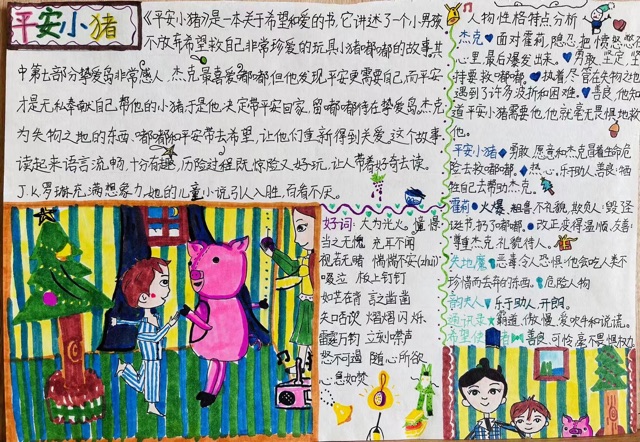 平安小猪
《平安小猪》是一本关于希望和爱的书,它讲述了一个小男孩
不放弃希望救自己非常珍爱的玩具小猪嘟嘟的故事,其
中第七部分挚爱岛非常感人,杰克最喜爱嘟嘟但他发现,平安更需要自己,而平安
才是无私奉献自己帮他的小猪于是他决定带平安回家,留嘟嘟待在挚爱岛,杰克
为失物之地的东西、嘟嘟和平安带去希望,让他们重新得到关爱,这个故事
读起来语言流畅,十分有趣,历险过程既惊险又好玩,让人带着好奇去读。
J.K.罗琳充满想象力,她的儿童小说引人入胜,百看不厌。
好词:大为光火
当之无愧 充耳不闻
视若无睹 惴惴不安(zhuì)
啜泣 板上钉钉
如芒在背
矢口否认 熠熠闪烁
雷霆万钧 立刻噤声
怒不可遏 随心所欲
心急如焚
人物性格特点分析
杰克 面对霍莉,隐忍,把愤怒憋在
心里,最后爆发出来。勇敢,坚定,坚
持要救嘟嘟。执着,尽管在失物之地
遇到了许多波折和困难。善良,他知
道平安小猪需要他,他就毫无畏惧地救
他。
平安小猪 勇敢,愿意和杰克冒着生命危
险去救嘟嘟。热心,乐于助人,善良,牺
牲自己去帮助杰克。
霍莉 火爆,粗鲁不礼貌,欺负人,毁圣
诞节,扔了嘟嘟。改正,变得温顺,友善,
尊重杰克,礼貌待人。
失地魔 恶毒,令人恐惧,他会吃人类不
珍惜而丢弃的东西。危险人物
乐于助人,开朗。
霸道,傲慢,爱吹牛和说谎。
希望 善良,可怜,毫不畏惧权力